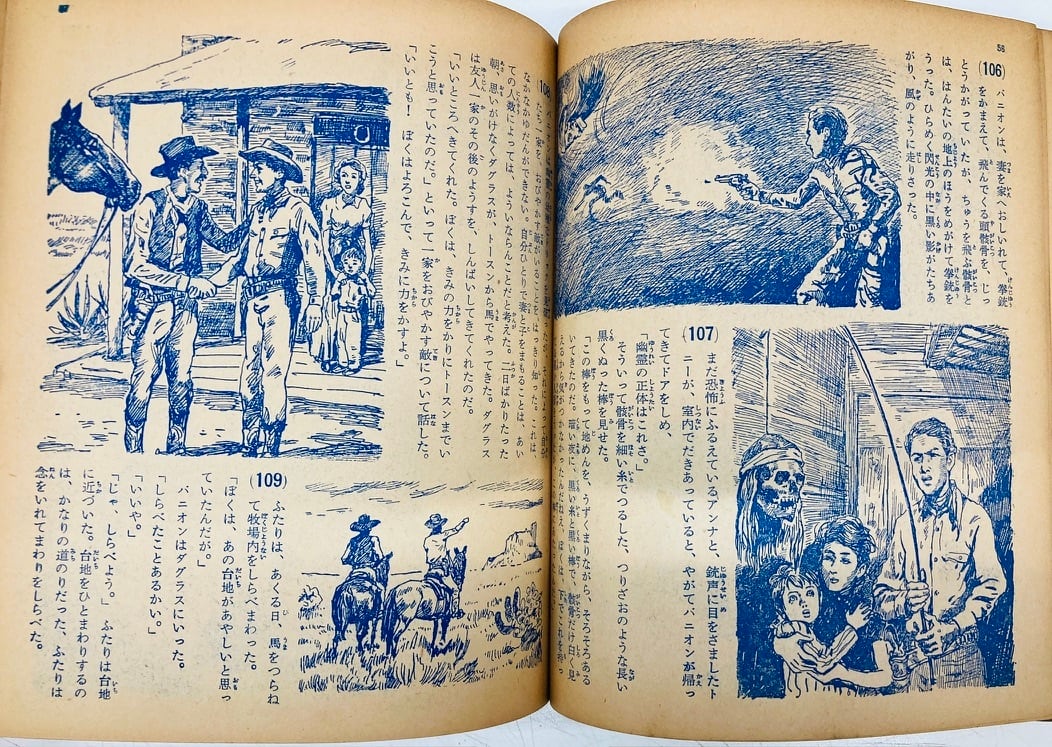 56
(106) バニオンは、妻を家へおしいれて、拳銃
をかまえて、飛んでくる頭骸骨を、じっ
とうかがっていたが、ちゅうを飛ぶ骸骨と
は、はんたいの地上のほうをめがけて拳銃を
うった。ひらめく閃光の中に黒い影がたちあ
がり、風のように走りさった。
(107) まだ恐怖にふるえているアンナと、銃声に目をさましたト
ニーが、室内でだきあっていると、やがてバニオンが帰っ
てきてドアをしめ、
「幽霊の正体はこれさ。」
そういって骸骨を細い糸でつるした、つりざおのような長い
黒くぬった棒を見せた。
「この棒をもって地めんを、うずくまりながら、そろそろある
いてきたのだ。暗い夜に、黒い糸と黒い棒で、骸骨だけ白く見
(108)
たち一家を、おびやかす敵がいることを、はっきり知った。これは、
なかなかゆだんができない。自分ひとりで妻と子をまもることは、あい
ての人数によっては、よういならんことだと考えた。二日ばかりたった
朝、思いがけなくダグラスが、トースンから馬でやってきた。ダグラス
は友人一家のその後のようすを、しんぱいしてきてくれたのだ。
「いいところへきてくれた。ぼくは、きみの力をかりにトースンまでい
こうと思っていたのだ。」といって一家をおびやかす敵について話した。
「いいとも！　ぼくはよろこんで、きみに力をかすよ。」
(109) ふたりは、あくる日、馬をつらね
て牧場内をしらべまわった。
「ぼくは、あの台地があやしいと思っ
ていたんだが。」
バニオンはダグラスにいった。
「しらべたことあるかい。」
「いいや。」
「じゃ、しらべよう。」ふたりは台地
に近づいた。台地をひとまわりするの
は、かなりの道のりだった、ふたりは
念をいれてまわりをしらべた。